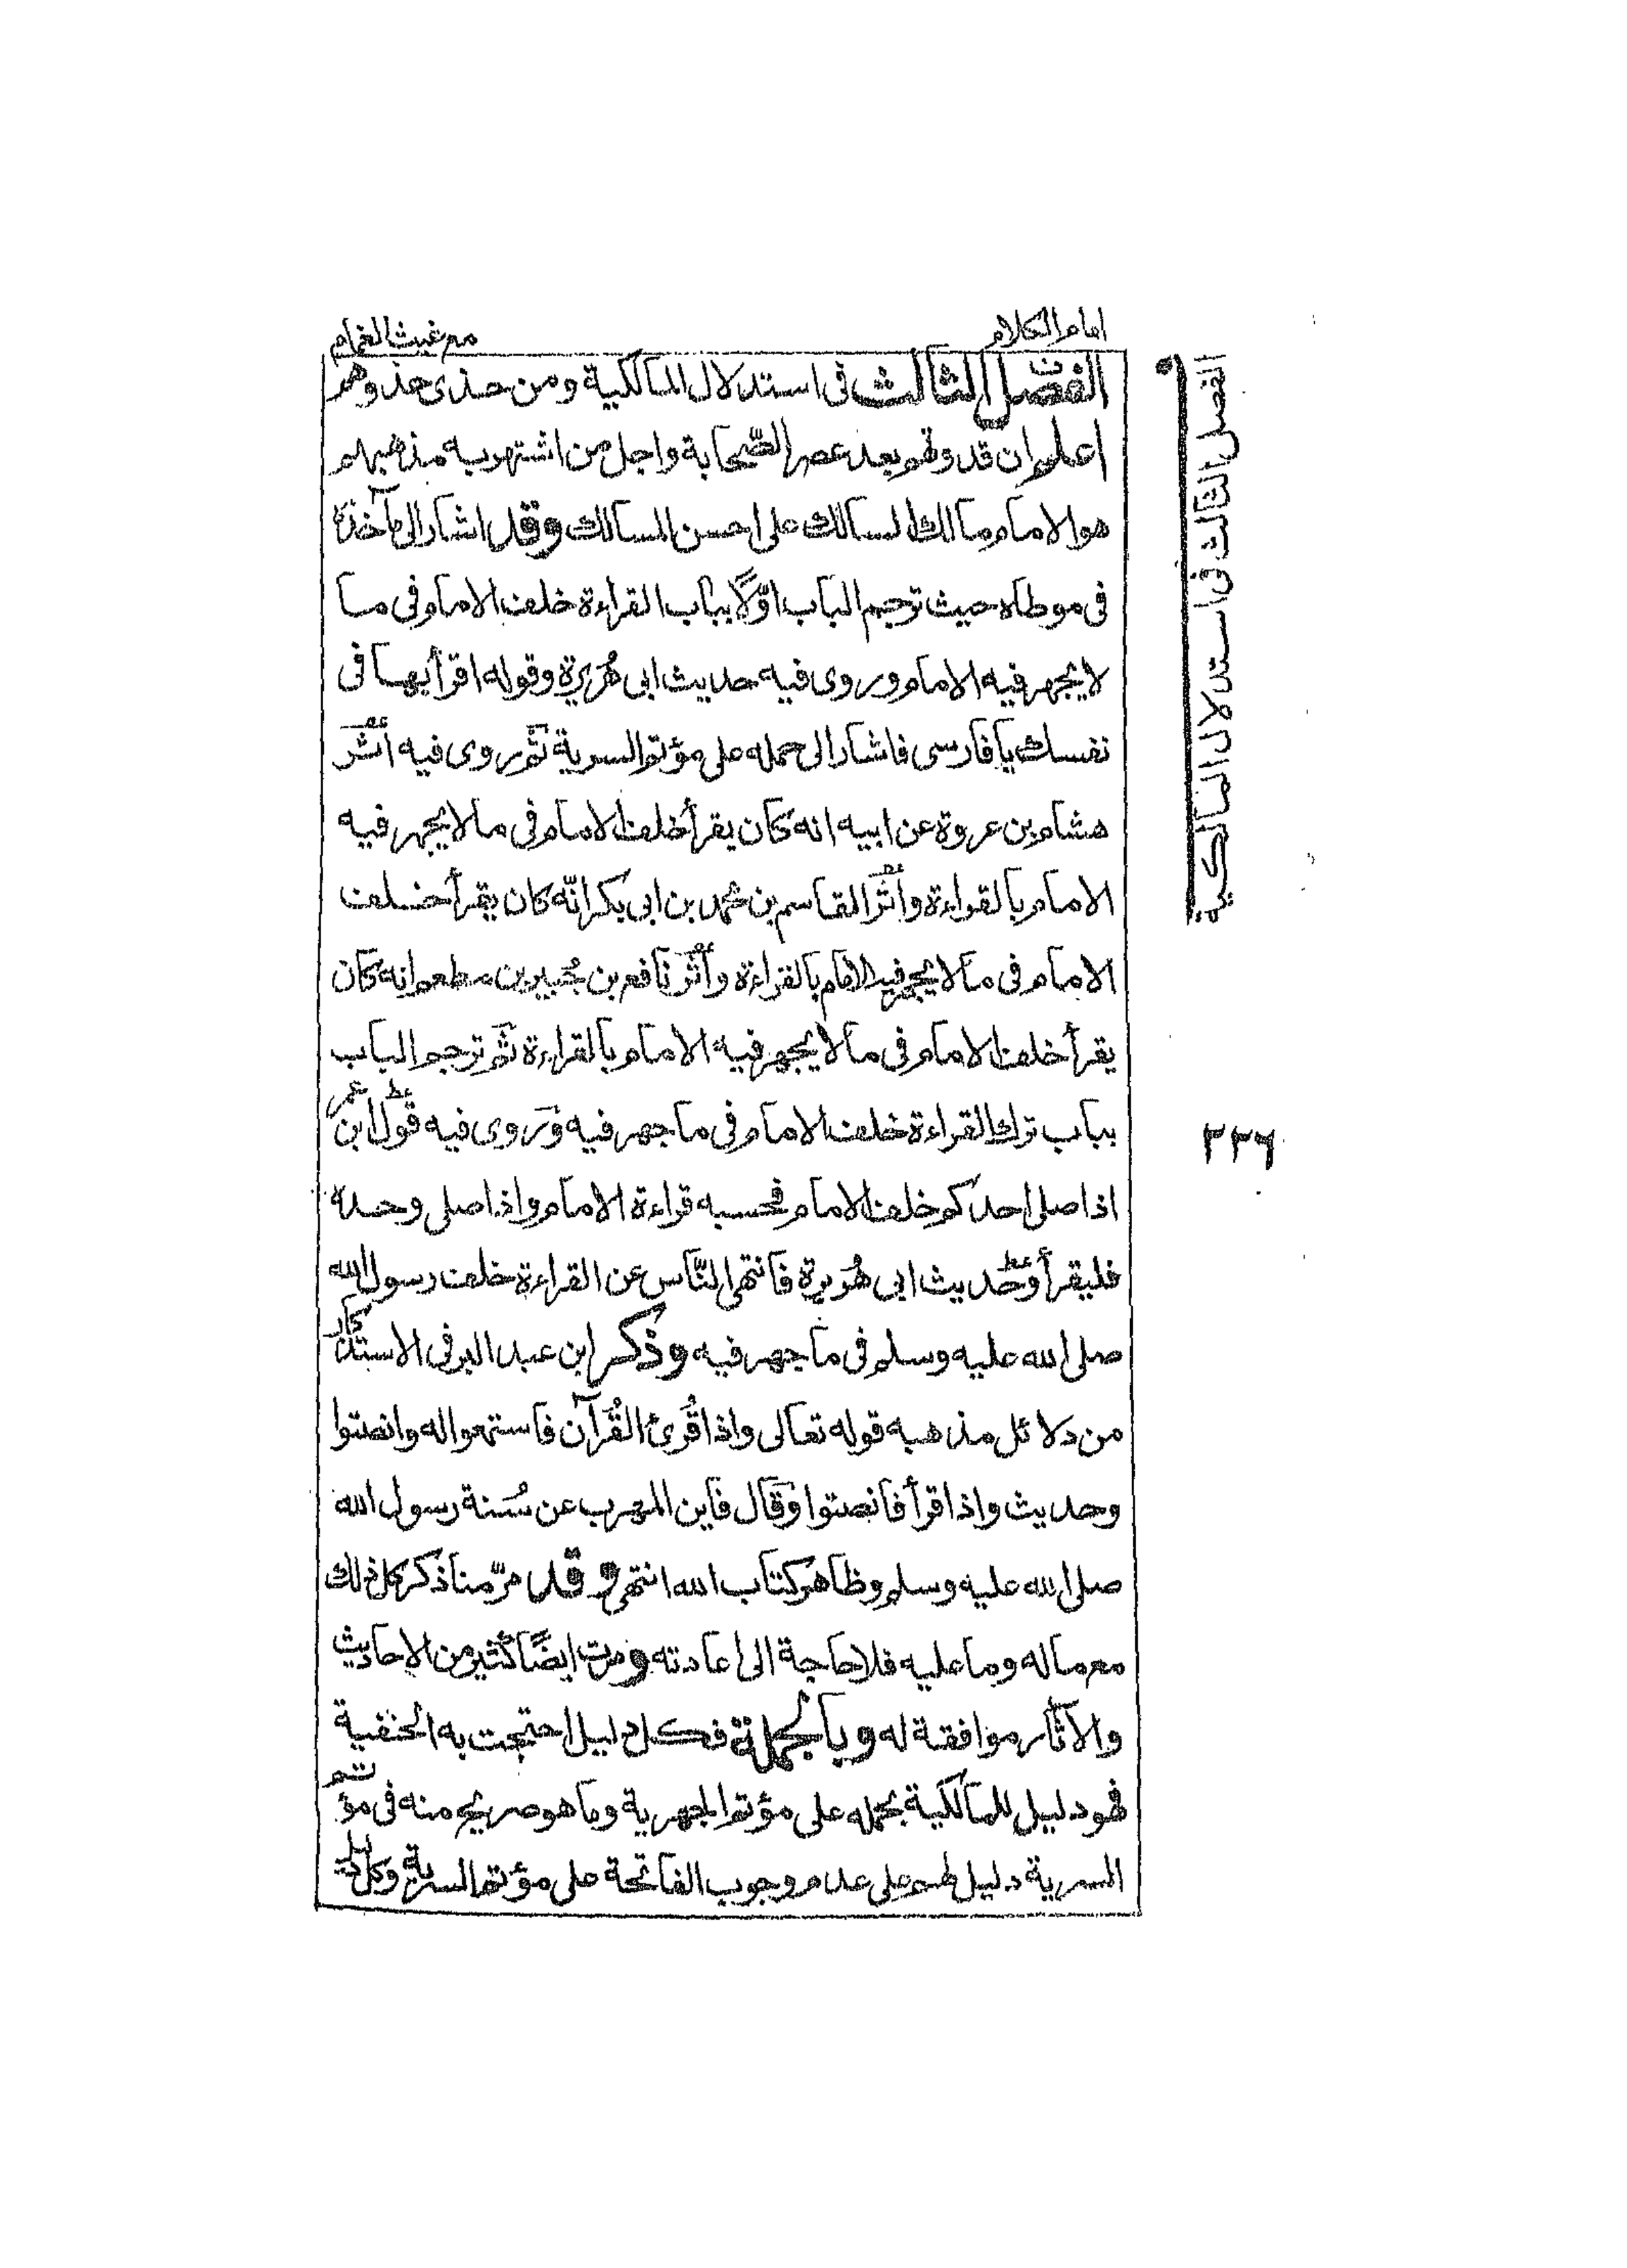 امام الكلام
مع غيث الغمام
الفصل الثالث فى استدلال المالكية ومن حذى حذوهم
اعلم ان قدوتهم بعد عصر الصّحابة واجل من اشتهر به مذهبهم
هو الامام مالك السالك على احسن المسالك وقد اشار الى مآخذه
فى موطاه حيث ترجم الباب اوّلًا بباب القراءة خلف الامام فى ما
لا يجهر فيه الامام وروى فيه حديث ابى هُريرة وقوله اقرأ بها فى
نفسك يا فارسى فاشار الى حمله على مؤتم السرية ثم روى فيه أثر
هشام بن عروة عن ابيه انه كان يقرأ خلف الامام فى ما لا يجهر فيه
الامام بالقراءة وأثر القاسم بن محمد بن ابى بكر انّه كان يقرأ خلف
الامام فى ما لا يجهر فيه الامام بالقراءة وأثر نافع بن جُبير بن مطعم انه كان
يقرأ خلف الامام فى ما لا يجهر فيه الامام بالقراءة ثم ترجم الباب
بباب ترك القراءة خلف الامام فى ما جهر فيه وروى فيه قول ابن عمر
اذا صلى احدكم خلف الامام فحسبه قراءة الامام واذا صلى وحده
فليقرأ وحديث ابى هُريرة فانتهى النّاس عن القراءة خلف رسول الله
صلى الله عليه وسلم فى ما جهر فيه وذكر ابن عبد البر فى الاستذكار
من دلائل مذهبه قوله تعالى واذا قُرئ القُرآن فاستمعوا له وانصتوا
وحديث واذا قرأ فانصتوا وقال فاين المهرب عن سُنة رسول الله
صلى الله عليه وسلم وظاهر كتاب الله انتهى وقد مرّ منا ذكر كل ذلك
مع ماله وما عليه فلا حاجة الى اعادته ومرت ايضًا كثير من الاحاديث
والآثار موافقة له وبالجملة فكل دليل احتجت به الحنفية
فهو دليل للمالكية بحمله على مؤتم الجهرية وما هو صريح منه فى مؤتم
السرية دليل لهم على عدم وجوب الفاتحة على مؤتم السرية وكل
الفصل الثالث فى استدلال المالكية
٢٢٦